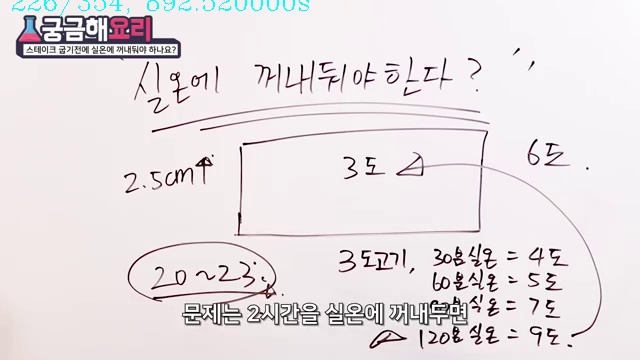 226/354, 892.520000s
궁금해요리
스테이크 굽기전에 실온에 꺼내둬야 하나요?
실온에 꺼내둬야한다?
2.5cm↑
3도
6도.
20~23도
3도고기, 30분실온 = 4도
60분실온 = 5도
분실온 = 7도
120분실온 = 9도.
문제는 2시간을 실온에 꺼내두면